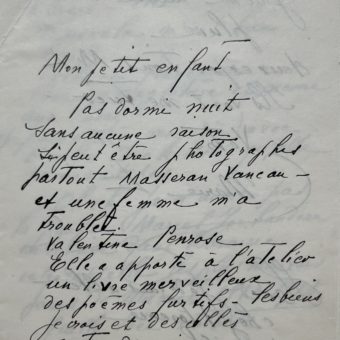 Mon petit enfant
Pas dormi nuit
sans aucune raison
Si peut être photographes
partout Masseran Vaneau -
et une femme m'a
troublet.
Valentine Penrose
Elle a apporté à l'atelier
un livre merveilleux
des poèmes furtifs - lesbiens
je crois et des collés